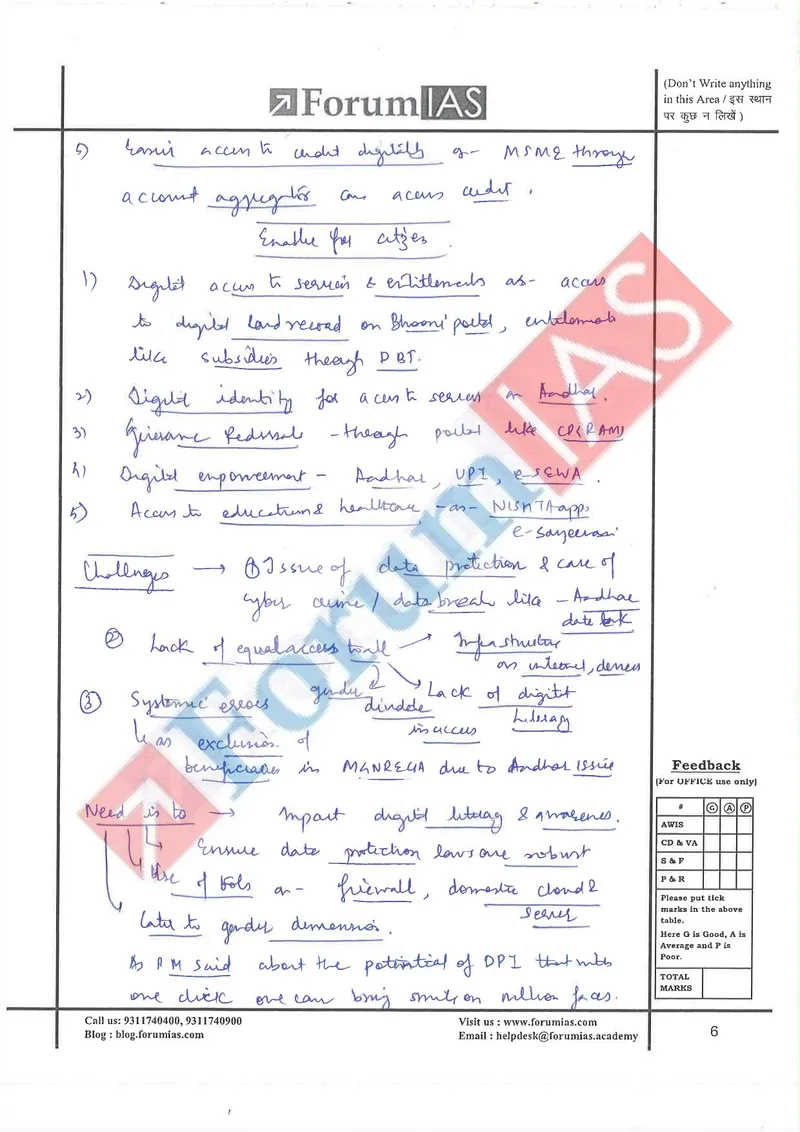 ForumIAS
(Don't Write anything
in this Area / इस स्थान
पर कुछ न लिखें )
5) Easier access to credit digitally as - MSME through
account aggregator can access credit.
Enable for citizens.
1) Digital access to services & entitlements as - access
to digital land record on Bhoomi portal, entitlements
like subsidies through DBT.
2) Digital identity for access to services as Aadhar.
3) Grievance Redressal - through portal like CPGRAMS
4) Digital empowerment - Aadhar, UPI, e-SEWA.
5) Access to education & healthcare, - as - NISHTA app,
e-Sanjeevani
Challenges → ① Issue of data protection & case of
cyber crime / data breach like - Aadhar
data leak
② Lack of equal access to all → Infrastructure
as internet, devices
gender divide in access
Lack of digital literacy
③ Systemic errors
↳ as exclusion of
beneficiaries in MGNREGA due to Aadhar issue
Need is to → Impart digital literacy & awareness.
Ensure data protection laws are robust
Use of tools as - firewall, domestic cloud &
server
Cater to gender dimension.
As PM said about the potential of DPI that with
one click one can bring smile on million faces.
Feedback
(For OFFICE use only)
# G A P
AWIS
CD & VA
S & F
P & R
Please put tick
marks in the above
table.
Here G is Good, A is
Average and P is
Poor.
TOTAL
MARKS
Call us: 9311740400, 9311740900
Blog : blog.forumias.com
Visit us : www.forumias.com
Email : helpdesk@forumias.academy
6
ForumIAS